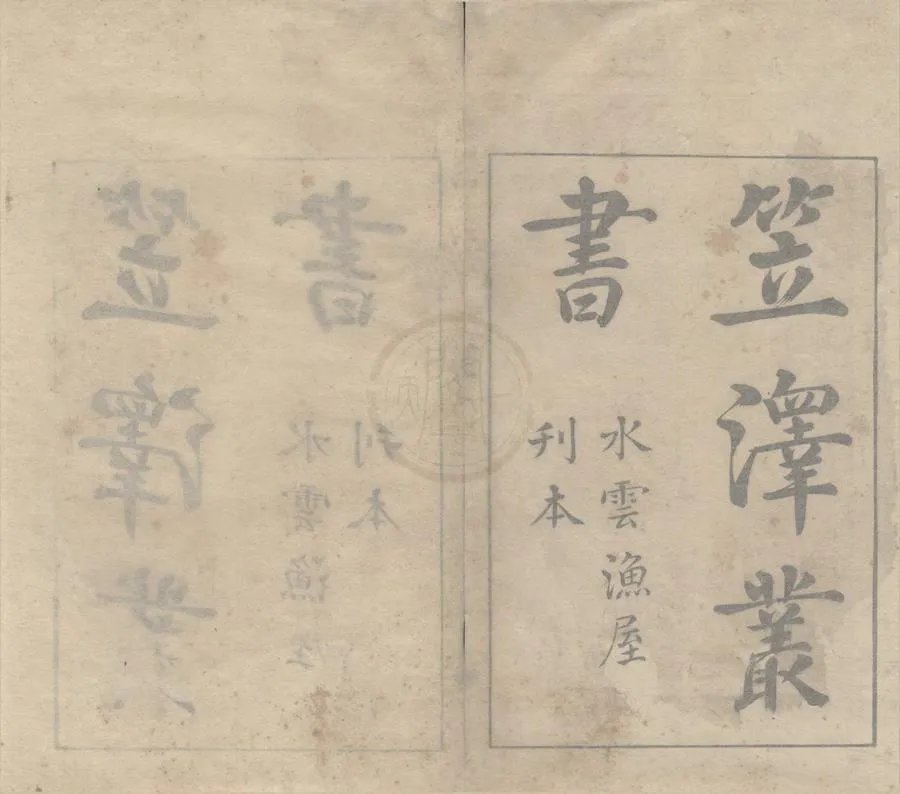 笠澤叢
書
水雲漁屋
刊本